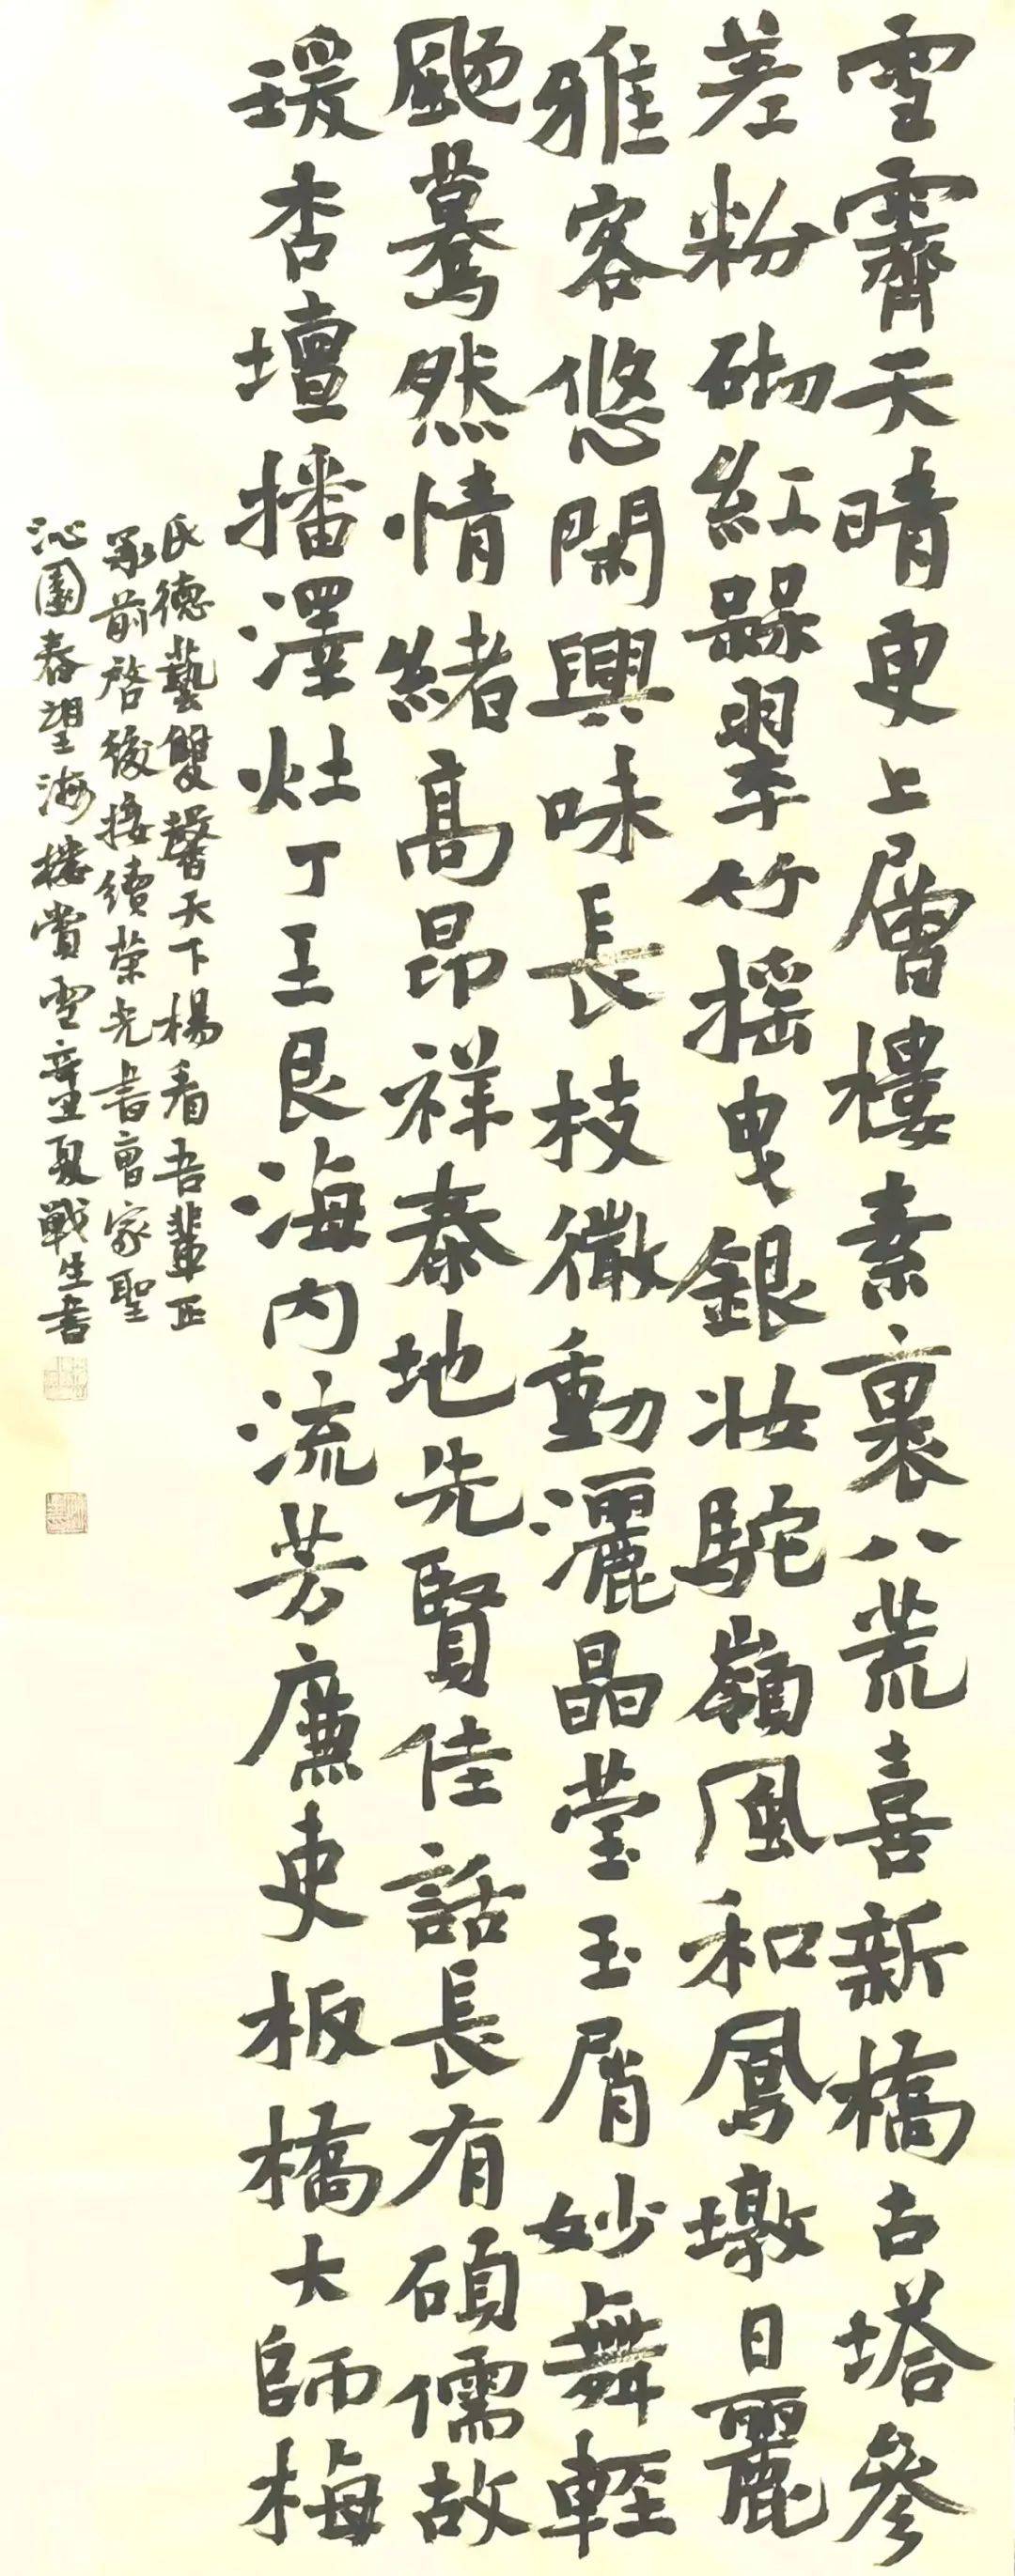 雪霽天晴更上層樓素裹八荒喜新橋古塔參
差粉砌紅躶翠竹搖曳銀妝駝嶺風和鳳墩日麗
雅客悠閑興味長枝微動灑晶瑩玉屑妙舞輕
颺驀然情緒高昂祥泰地先賢佳話長有碩儒故
瑗杏壇播澤灶丁王艮海內流芳廉吏板橋大師梅
氏德藝雙馨天下楊看吾輩正
承前啓後接續榮光書曾家聖
沁園春望海樓賞雪童夏戰生書